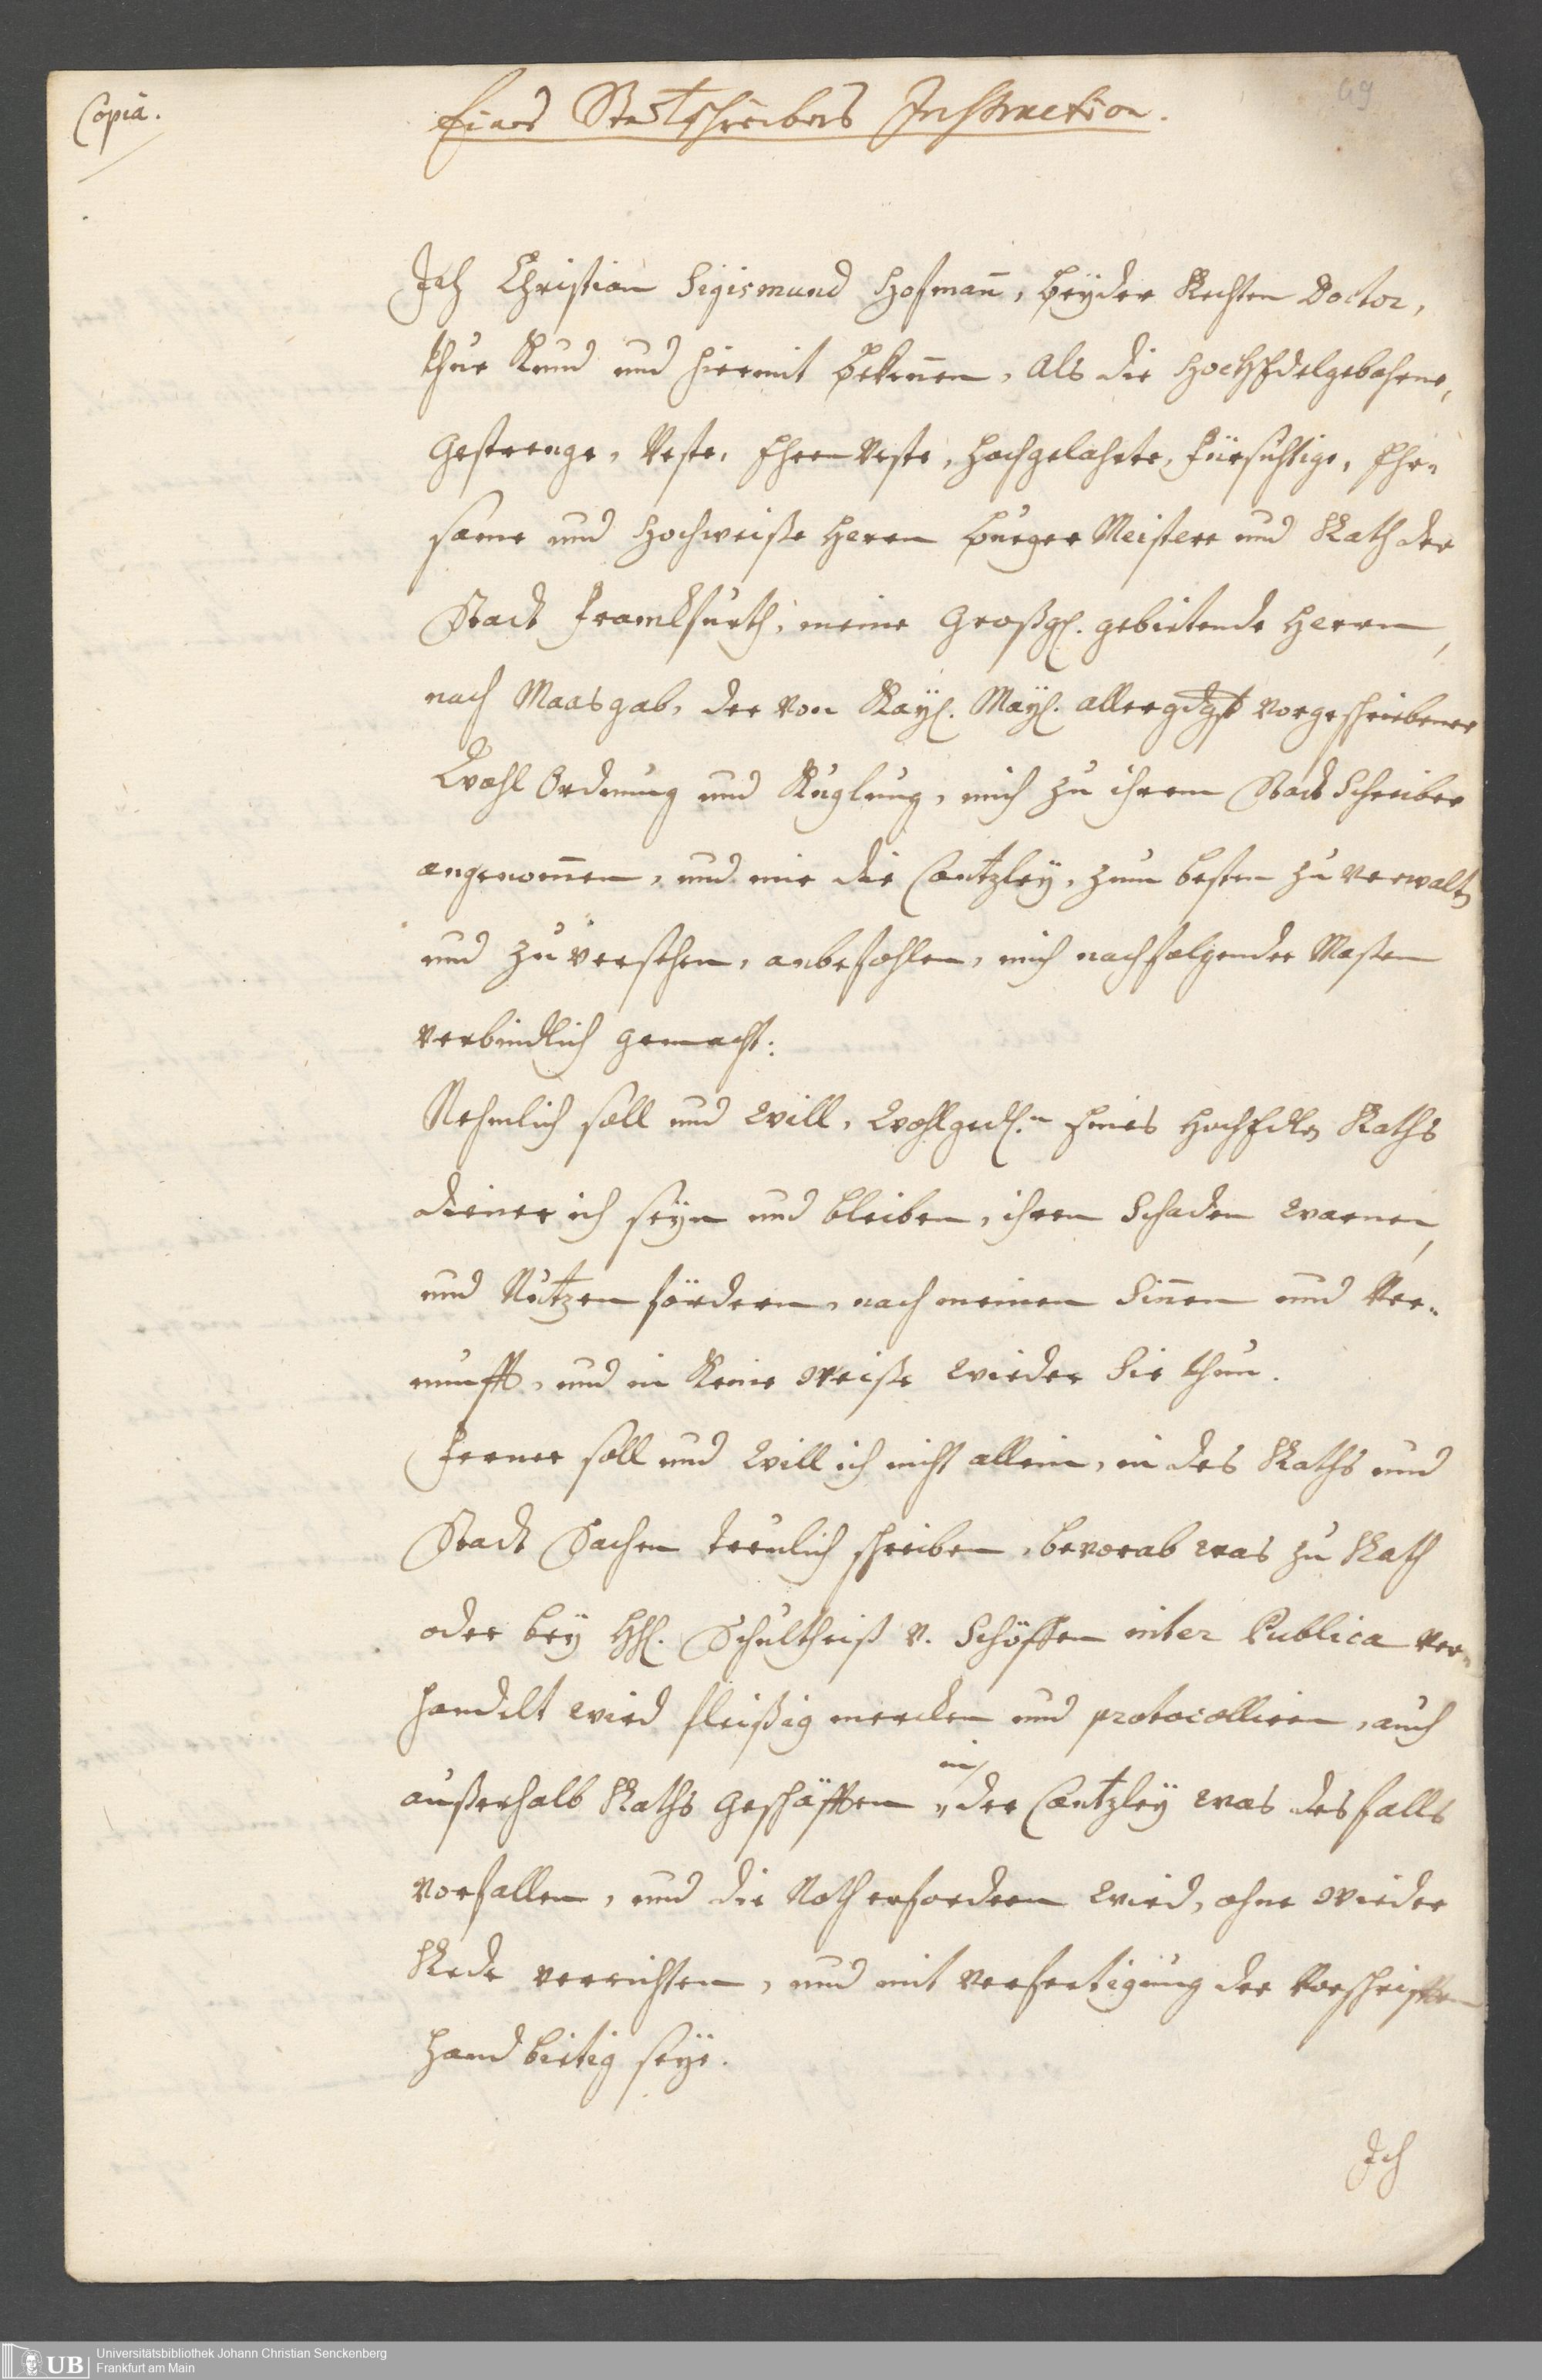 Copia.
Eines Stadtschreibers Instruction.
49
Ich Christian Sigismund Hofman̄, beÿder Rechten Doctor,
thue Kund und hiermit bekennen, als die HochEdelgebohrne,
Gestrenge, Veste, EhrenVeste, Hochgelahrte, Fürsichtige, Ehr¬
same und Hochweiße Herren Burger Meistere und Rath der
Stadt Franckfurth, meine Großg. gebietende Herren,
nach Maasgab, der von Kaÿl. Maÿl. allergdgst vorgeschriebener
Wahl Ordnung und Kuglung, mich zu ihrem Stadt Schreiber
angenom̄en, und mir die Cantzleÿ, zum besten zu verwalten
und zu versehen, anbefohlen, mich nachfolgender Maßen
verbindlich gemacht:
Nehmlich soll und will, Wohlged.n Eines HochEdlen Raths
diener ich seÿn und bleiben, ihren Schaden warnen,
und Nutzen fördern, nach meinen Sin̄en und Ver¬
nunfft, und in Keine Weiße wieder Sie thun.
Ferner soll und will ich nicht allein, in des Raths und
Stadt Sachen treulich schreiben, bevorab was zu Rath
oder beÿ HH. Schultheiß u. Schöffen inter Publica ver¬
handelt wird fleißig mercken und protocolliren, auch
in
außerhalb Raths Geschäfften der Cantzleÿ was desfalls
vorfallen, und die Noth erfordern wird, ohne Wieder
Rede verrichten, und mit Verfertigung der Vorschrifften
Hand bietig seÿe.
Ich
UB Universitätsbibliothek Johann Christian Senckenberg
Frankfurt am Main